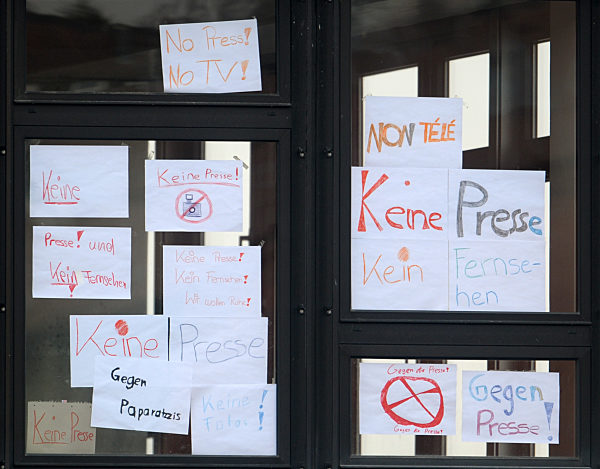 No Press!
No TV!
Keine
Keine Presse!
Presse! und
Kein Fernsehen
Keine Presse!
Kein Fernsehen!
Wir wollen Ruhe!
Keine Presse
Gegen
Paparatzis
Keine
Fotos!
Keine Presse
NON TÉLÉ
Keine Presse
Kein Fernse-
hen
Gegen die Presse!
Gegen die Presse!
Gegen
Presse!